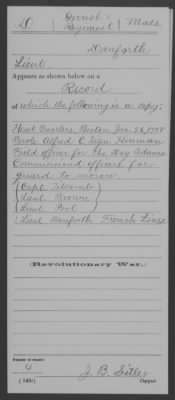 D | Gerrish's Regiment | Mass.
Danforth
Lieut.
Appears as shown below on a
Record
of which the following is a copy:
Head Quarters Boston Jan. 26, 1778
Parole Alfred C. Sign
Field officer for the Day Adams
Commissioned officers for
guard to morow
Capt. Titcomb
Lieut. Brown
Lieut. Pool
Lieut. Danforth French Lines
(Revolutionary War.)
Number of record:
4
(545c)
J. B. Sitler
Copyist.